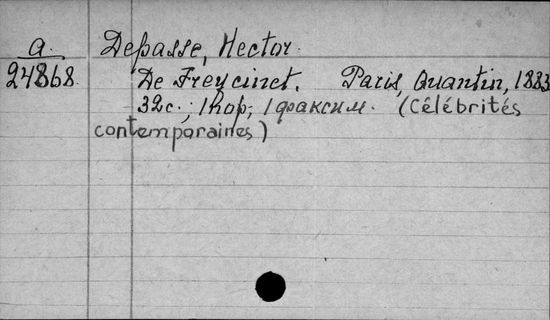 a.
24868.
Depasse, Hector.
De Freycinet. Paris, Quantin, 1883
32с.; 1 пор; 1 факсим. (Célébrités
contemporaines)